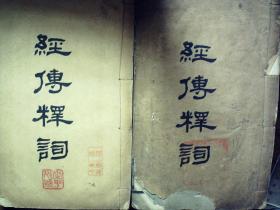 經傳釋詞
經傳釋詞